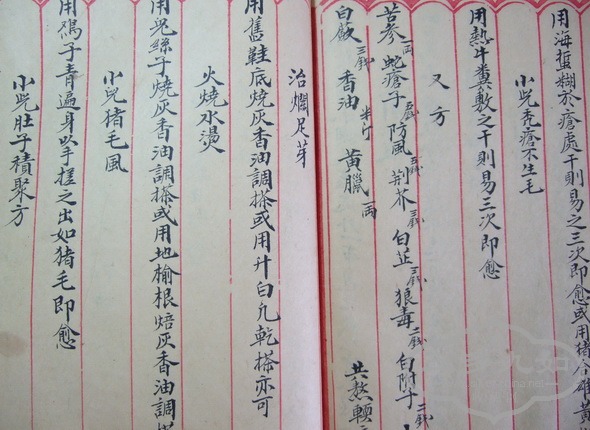 用海蜇糊於瘡處干則易之三次即愈或用猪
小児禿瘡不生毛
用熱牛糞敷之干則易三次即愈
又方
苦参一両 蛇瘡子 防風 荆芥三錢 白芷三錢 狼毒二錢 白附子二錢
白蘞三錢 香油半斤 黄臘一両 共熬
治爛足芽
用舊鞋底焼灰香油調搽或用升白凣乾搽亦可
火燒水燙
用兎絲子燒灰香油調搽或用地榆根焙灰香油調搽
小兒猪毛風
用鴉子青遍身以手搓之出如猪毛即愈
小児肚子積聚方